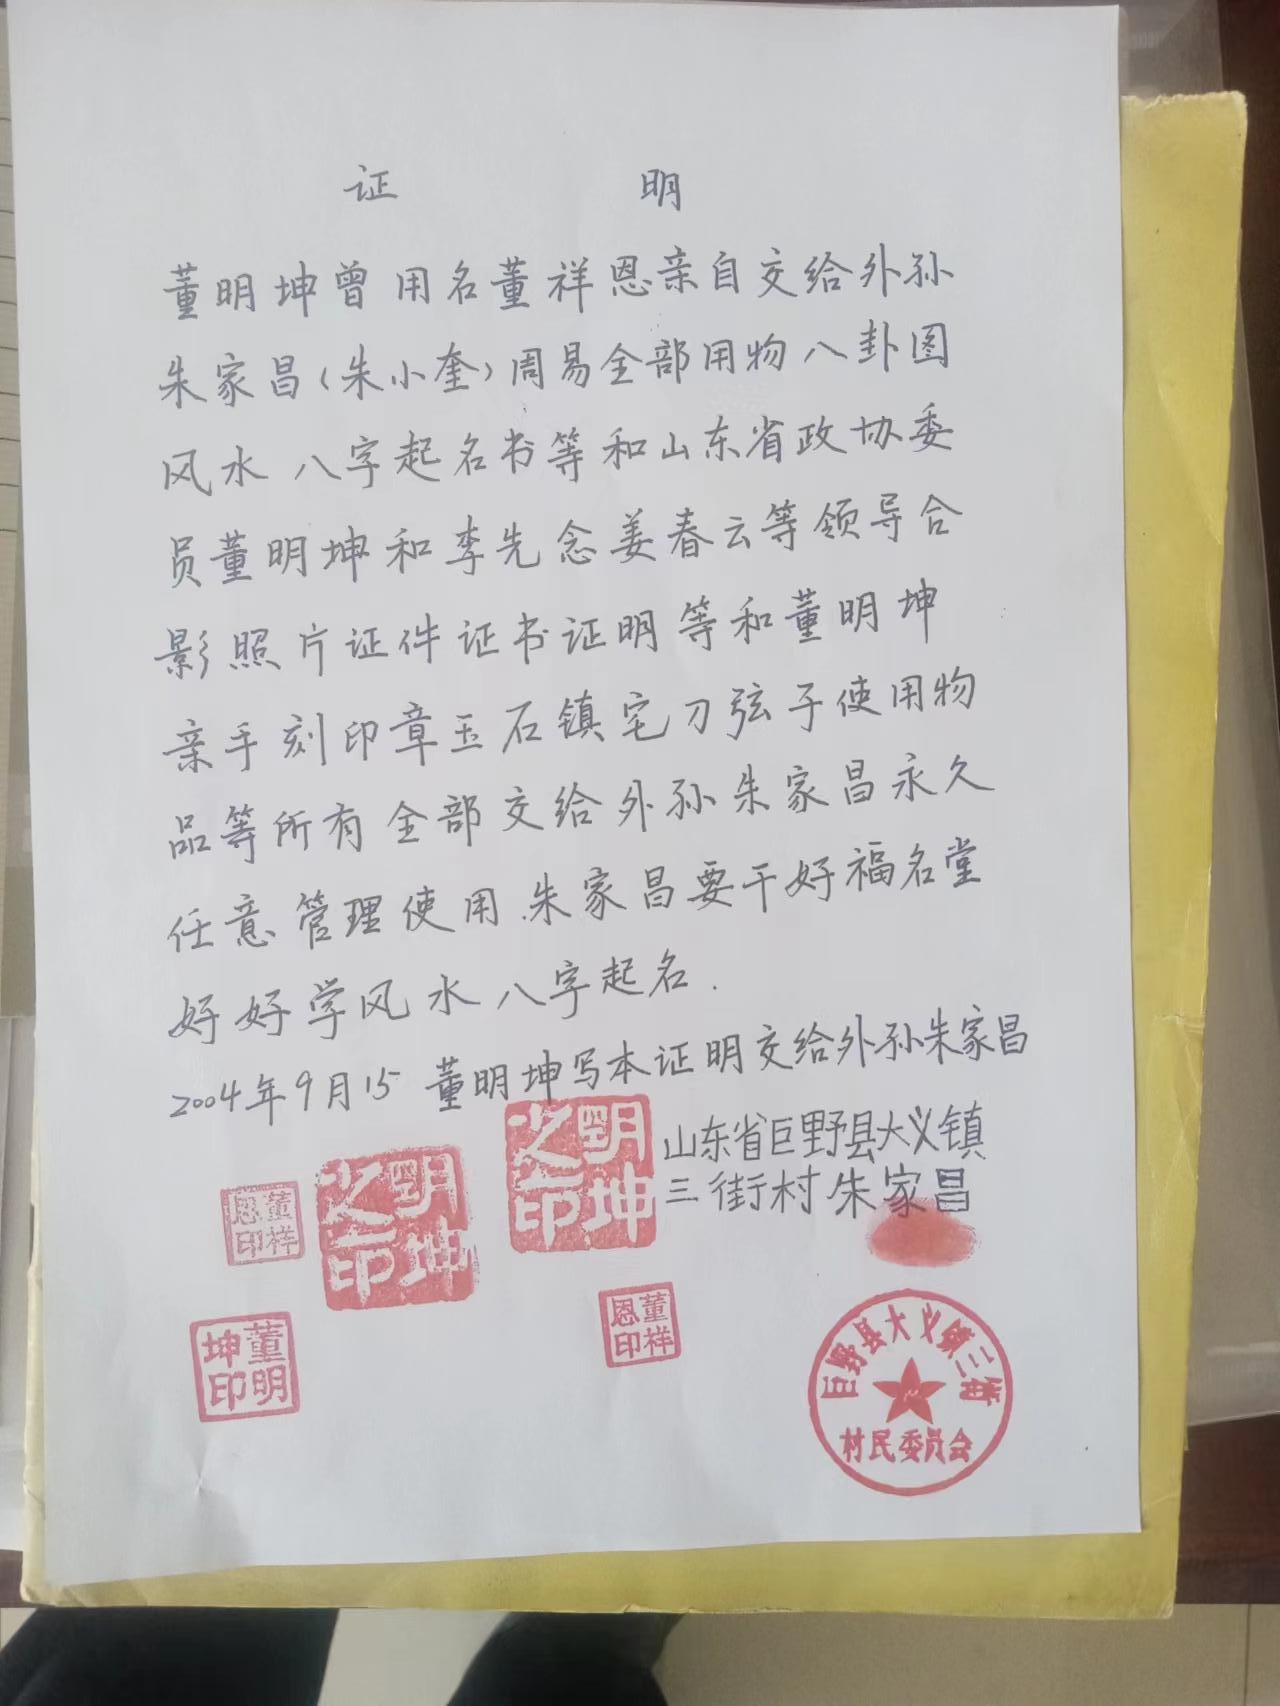 证 明
董明坤曾用名董祥恩亲自交给外孙
朱家昌(朱小奎)周易全部用物八卦图
风水 八字起名书等和山东省政协委
员董明坤和李先念姜春云等领导合
影照片证件证书证明等和董明坤
亲手刻印章玉石镇宅刀弦子使用物
品等所有全部交给外孙朱家昌永久
任意管理使用.朱家昌要干好福名堂
好好学风水八字起名.
2004年9月15 董明坤写本证明交给外孙朱家昌
山东省巨野县大义镇
三街村.朱家昌
董祥恩印
明坤之印
明坤之印
董祥恩印
董明坤印
巨野县大义镇三街
村民委员会